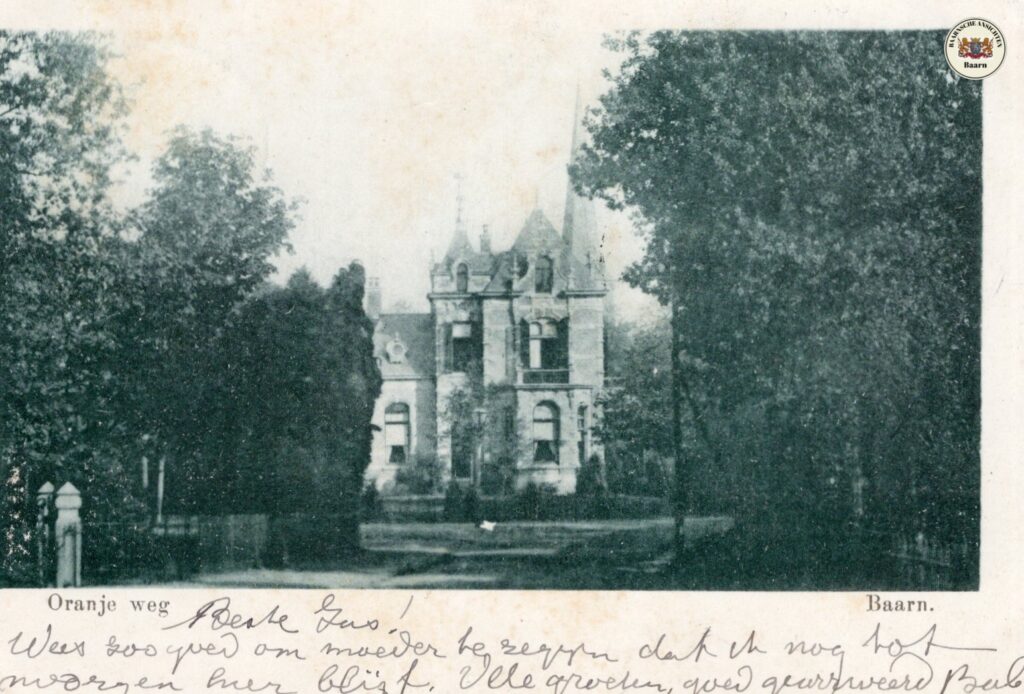 BAARNSCHE ANSICHTEN
Baarn
Oranje weg
Baarn.
Beste Gus!
Wees zoo goed om moeder te zeggen dat ik nog tot
morgen hier blijf. Vele groeten, goed gearriveerd